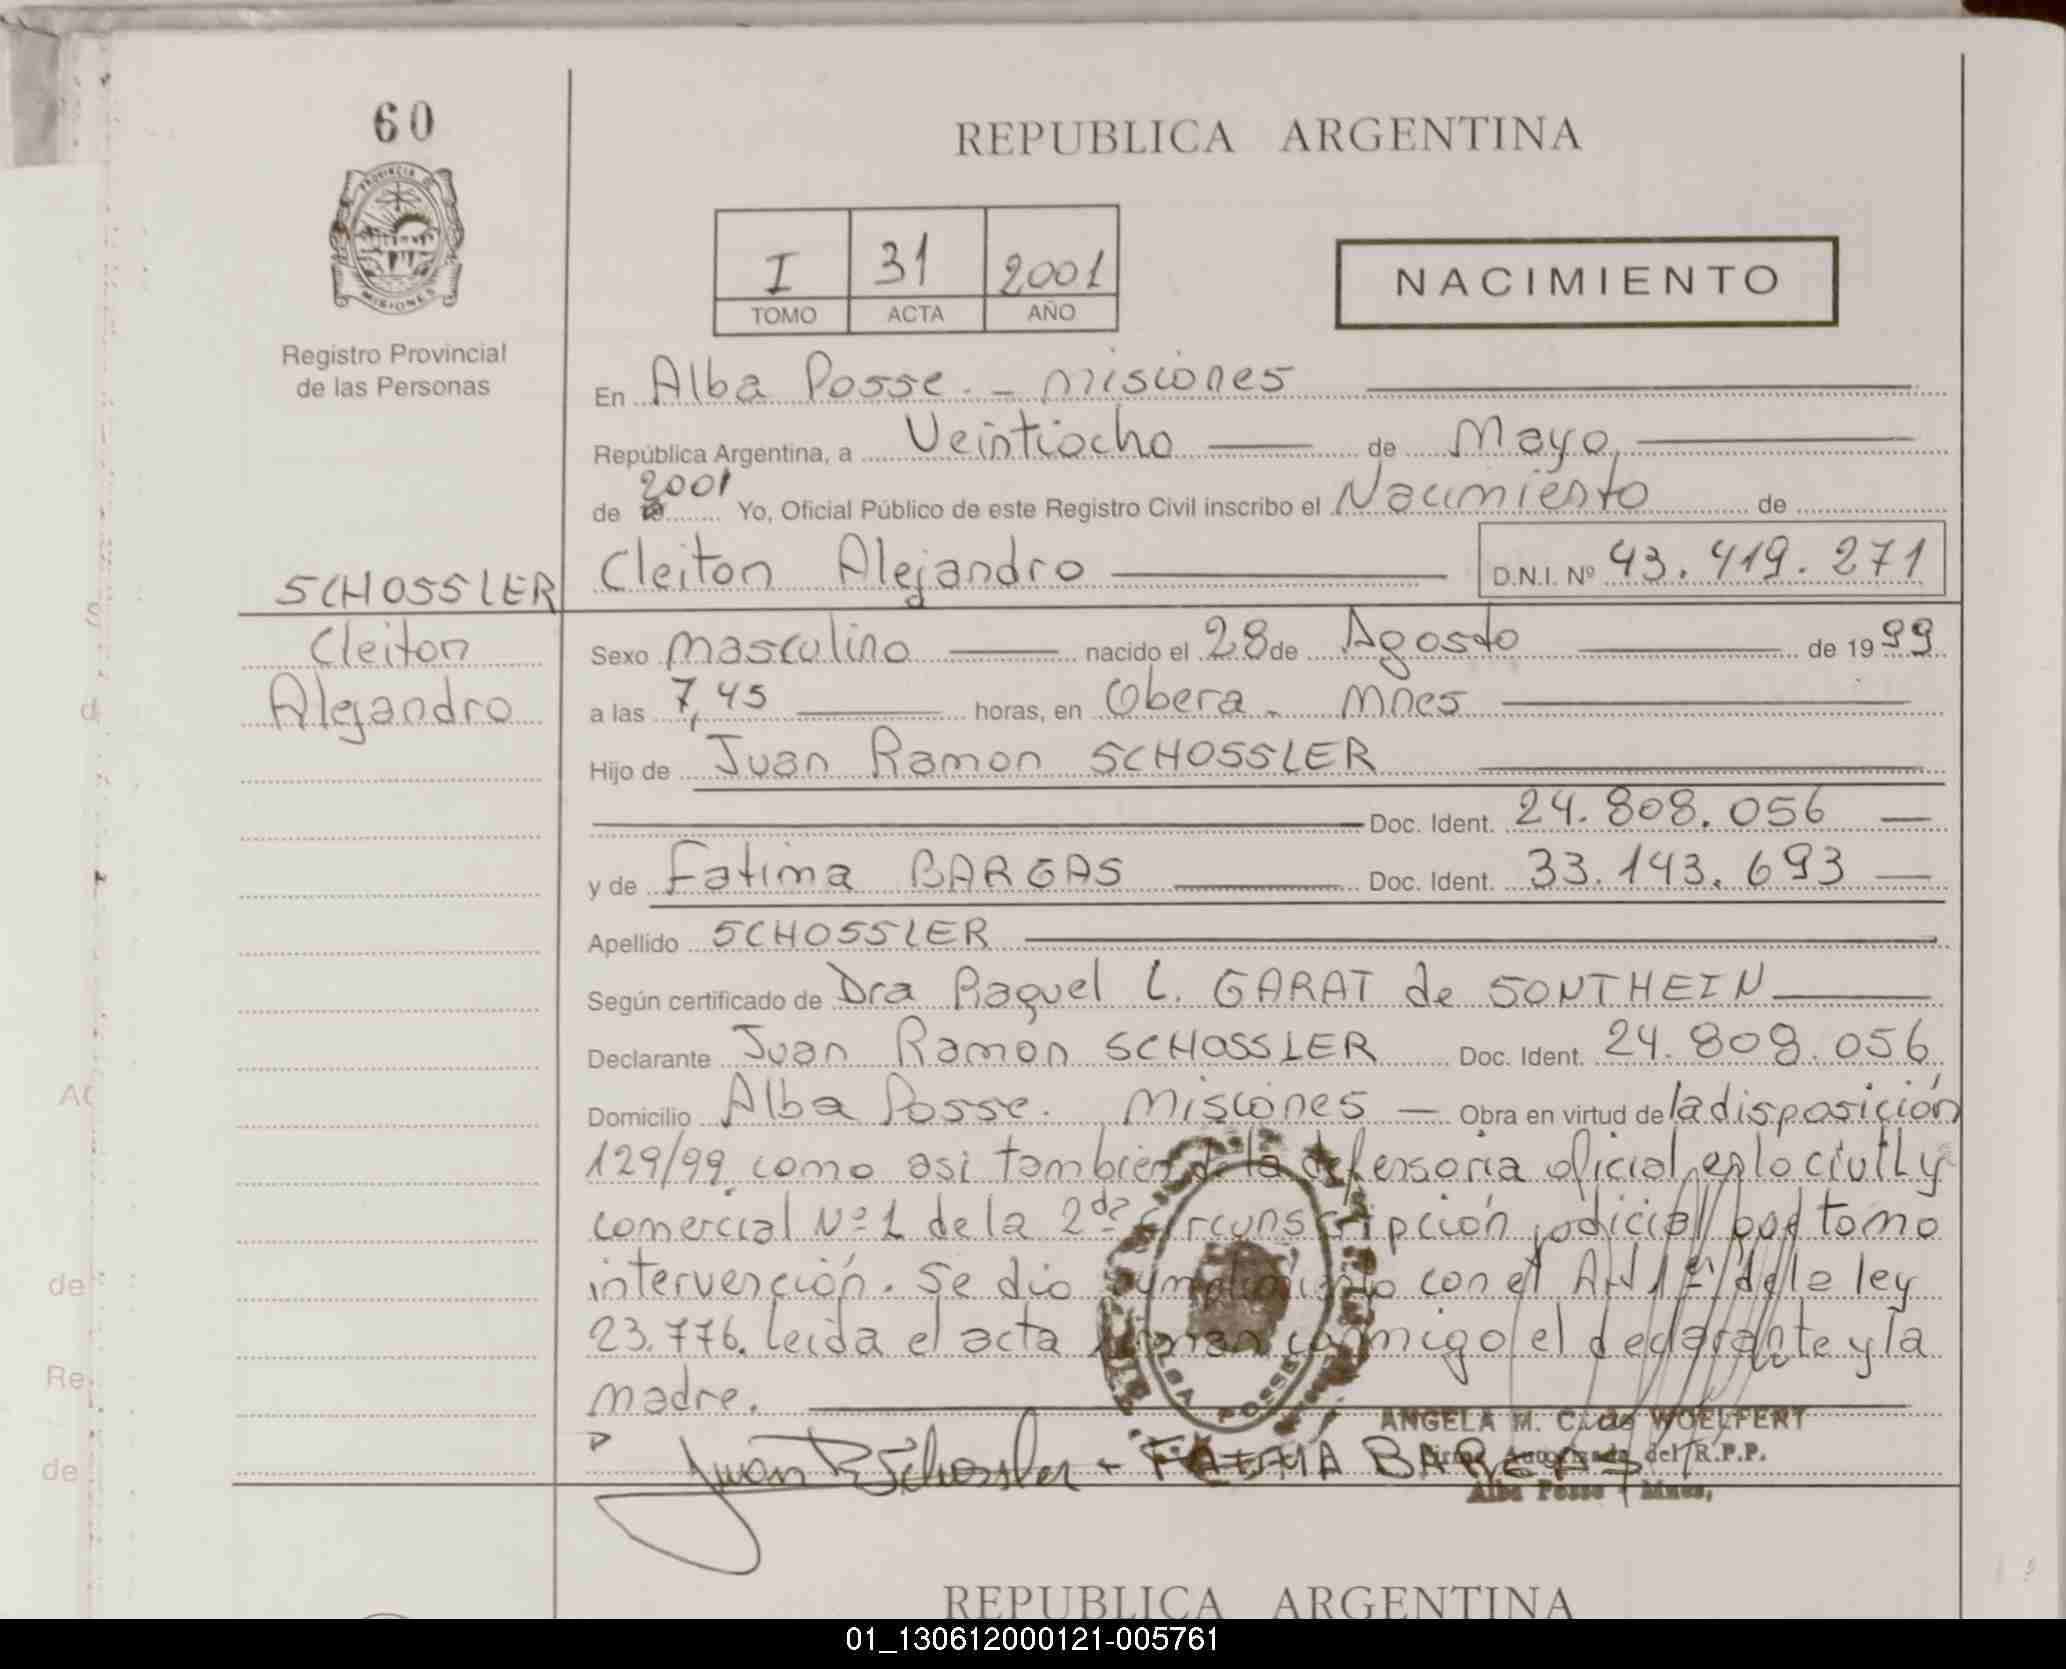 60
REPUBLICA ARGENTINA
PROVINCIA D
MISIONES
I 31 2001
TOMO ACTA AÑO
NACIMIENTO
Registro Provincial
de las Personas
En Alba Posse. - Misiones
República Argentina, a Veintiocho de Mayo
de 2001 Yo, Oficial Público de este Registro Civil inscribo el Nacimiento de
SCHOSSLER Cleiton Alejandro D.N.I. Nº 43.419.271
Cleiton
Alejandro
Sexo masculino nacido el 28 de Agosto de 1999
a las 7,45 horas, en Obera - Mnes
Hijo de Juan Ramon SCHOSSLER
Doc. Ident. 24.808.056
y de Fatima BARGAS Doc. Ident. 33.143.693
Apellido SCHOSSLER
Según certificado de Dra Raquel L. GARAT de SONTHEIN
Declarante Juan Ramon SCHOSSLER Doc. Ident. 24.808.056
Domicilio Alba Posse. Misiones Obra en virtud de la disposición
129/99 como asi tambien de la defensoria oficial en lo civil y
comercial Nº 1 de la 2da circunscripción judicial que tomo
intervención. Se dio cumplimiento con el Art 1º de la ley
23.776. leida el acta firman conmigo el declarante y la
madre.
ALBA POSSE
ANGELA M. C. de WOELFERT
Firma Autorizada del R.P.P.
Alba Posse - Mnes,
Juan R Schossler - FATIMA BARGAS
REPUBLICA ARGENTINA
01_130612000121-005761